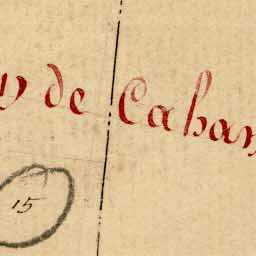 de Caban
15